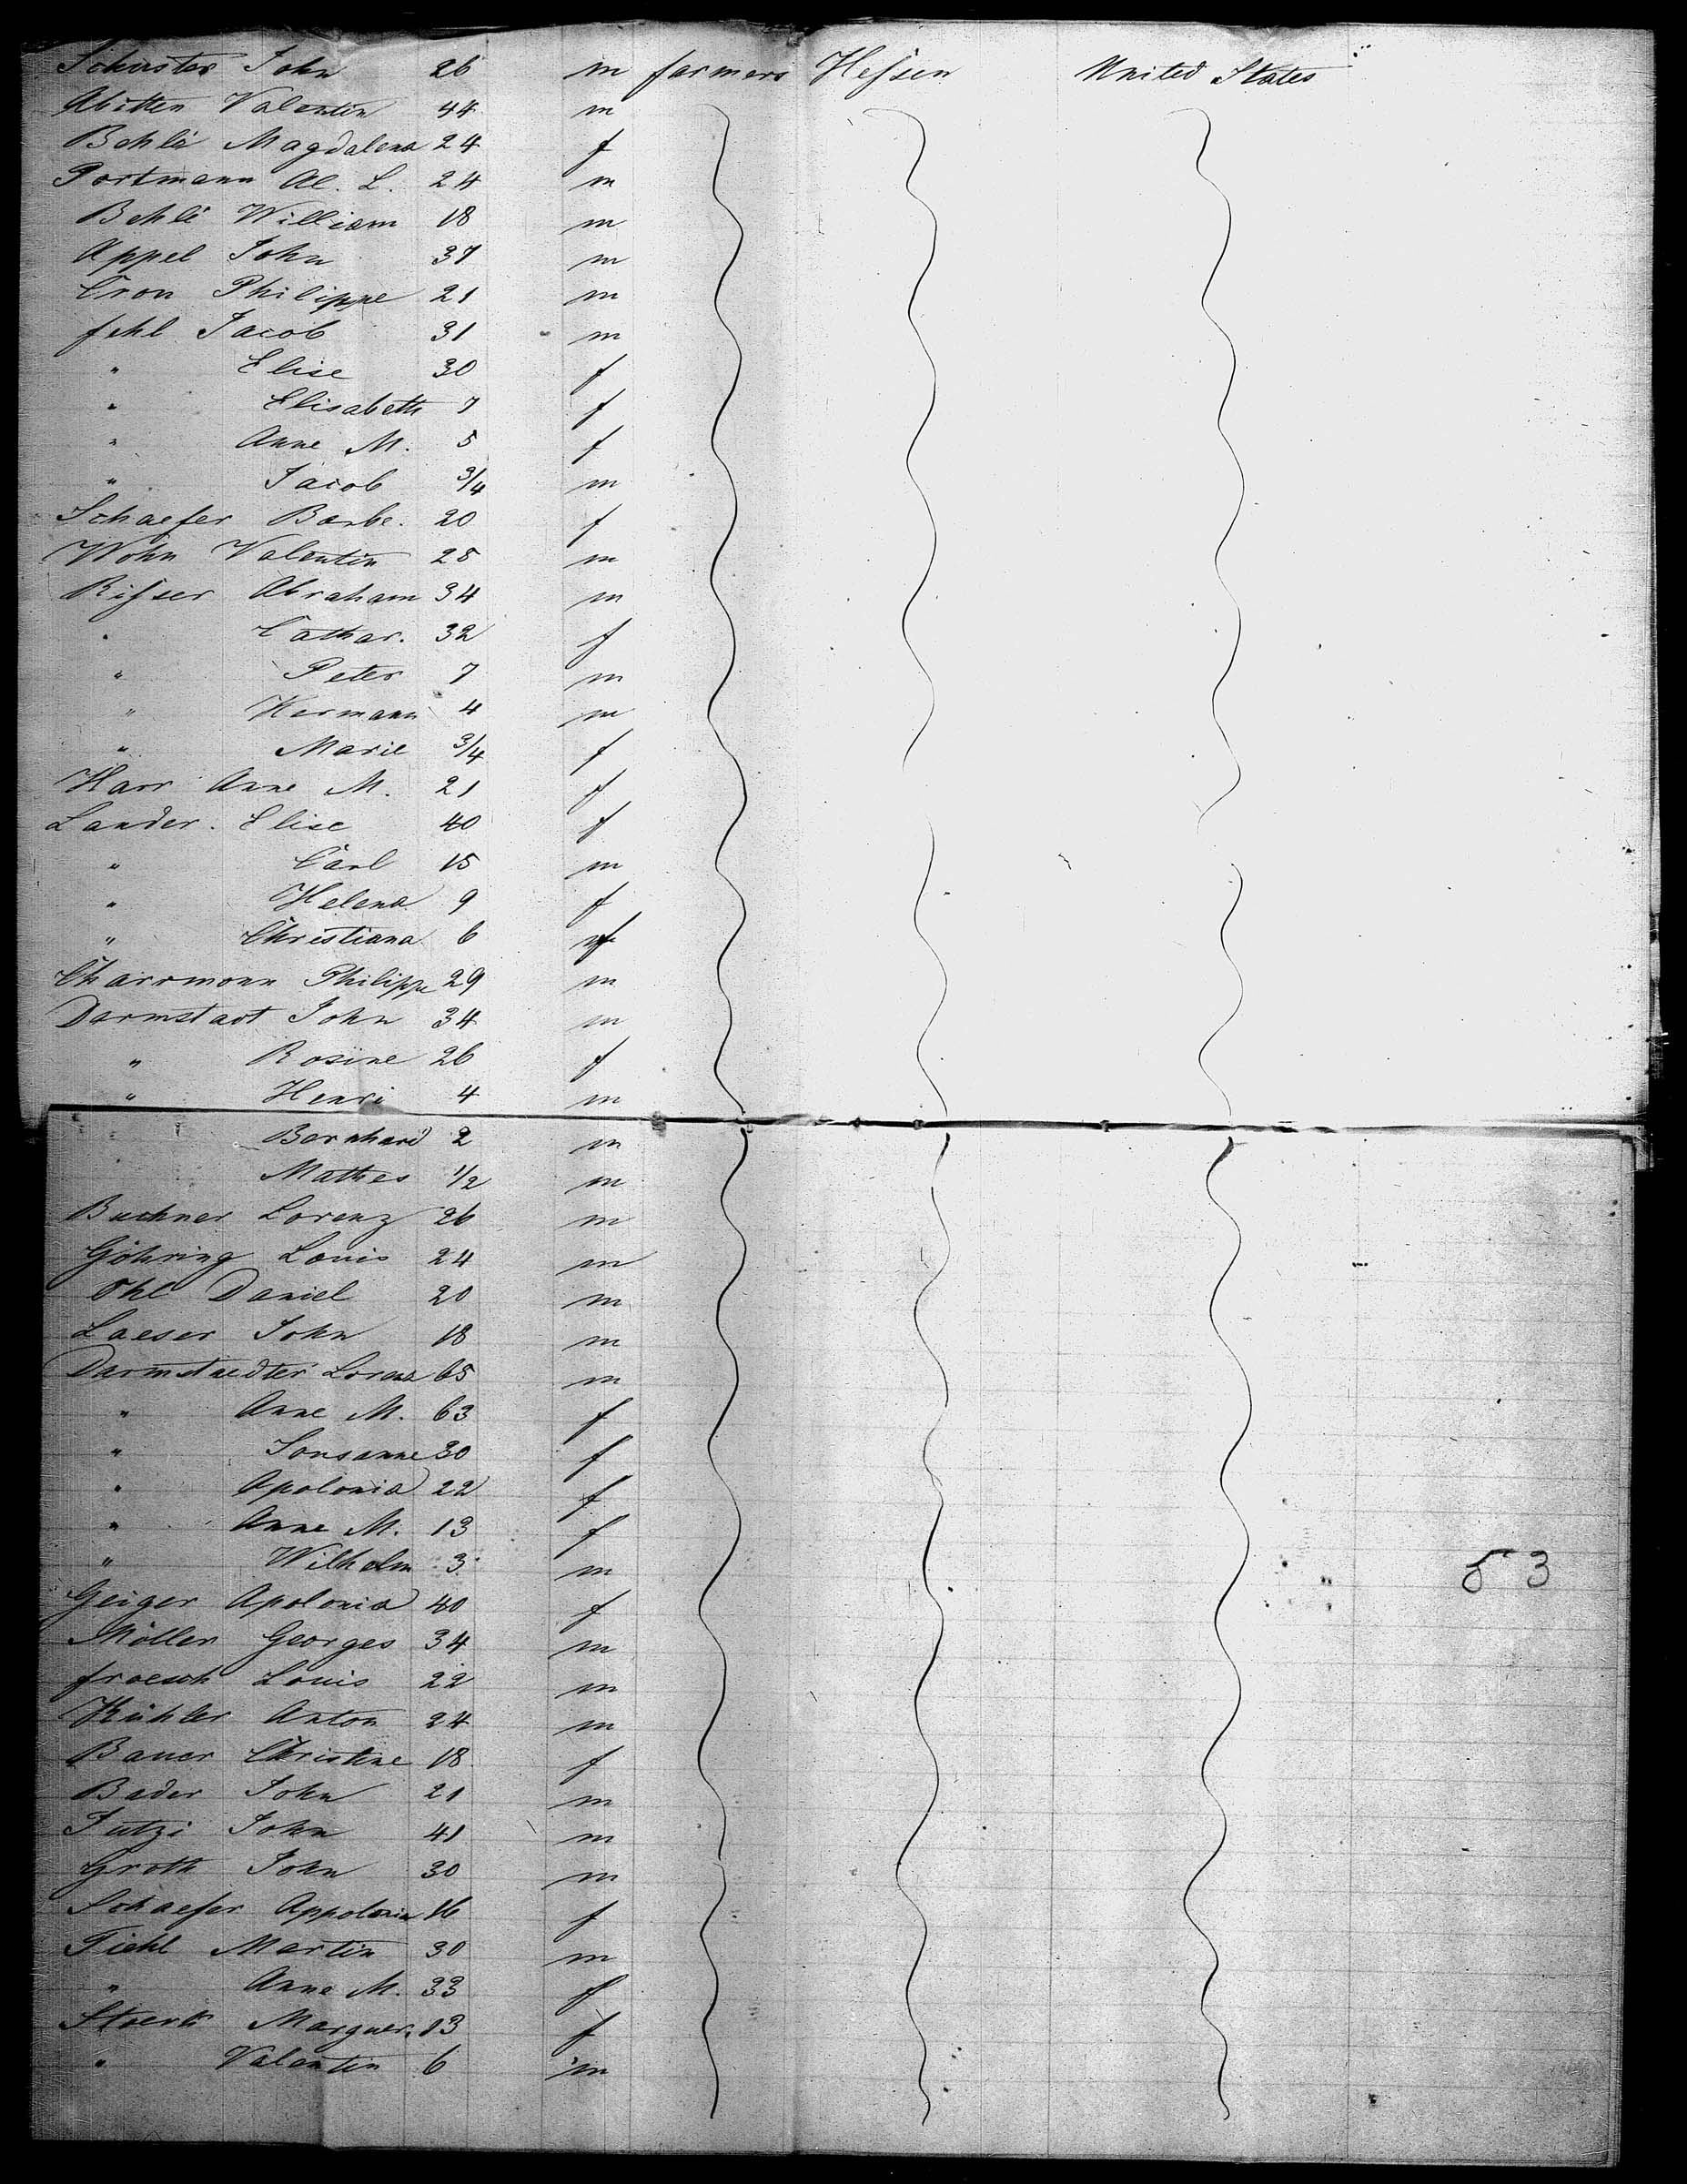 Schuster John 26 m farmers Hessen United States
Abitten Valentin 44 m
Behle Magdalena 24 f
Portmann Al. L. 24 m
Behle William 18 m
Appel John 37 m
Cron Philippe 21 m
fehl Jacob 31 m
" Elise 30 f
" Elisabeth 7 f
" Anne M. 5 f
" Jacob 3/4 m
Schaefer Barbe. 20 f
Wohn Valentin 28 m
Risser Abraham 34 m
" Cathar. 32 f
" Peter 7 m
" Hermann 4 m
" Marie 3/4 f
Harr Anne M. 21 f
Lander. Elise 40 f
" Carl 15 m
" Helena 9 f
" Christiana 6 f
Charrmann Philippe 29 m
Darmstadt John 34 m
" Rosine 26 f
" Henri 4 m
" Bernhard 2 m
Mathes 1/2 m
Buchner Lorenz 26 m
Göhring Louis 24 m
Ohl Daniel 20 m
Laeser John 18 m
Darmstaedter Lorenz 65 m
" Anne M. 63 f
" Sousanne 30 f
" Apolonia 22 f
" Anne M. 13 f
" Wilhelm 3 m 53
Geiger Apolonia 40 f
Möller Georges 34 m
froesch Louis 22 m
Kühler Anton 24 m
Bauer Christine 18 f
Bader John 21 m
Jutzi John 41 m
Groth John 30 m
Schaefer Appolonia 16 f
Tiehl Martin 30 m
" Anne M. 33 f
Stoerk Marguer. 13 f
" Valentin 6 m